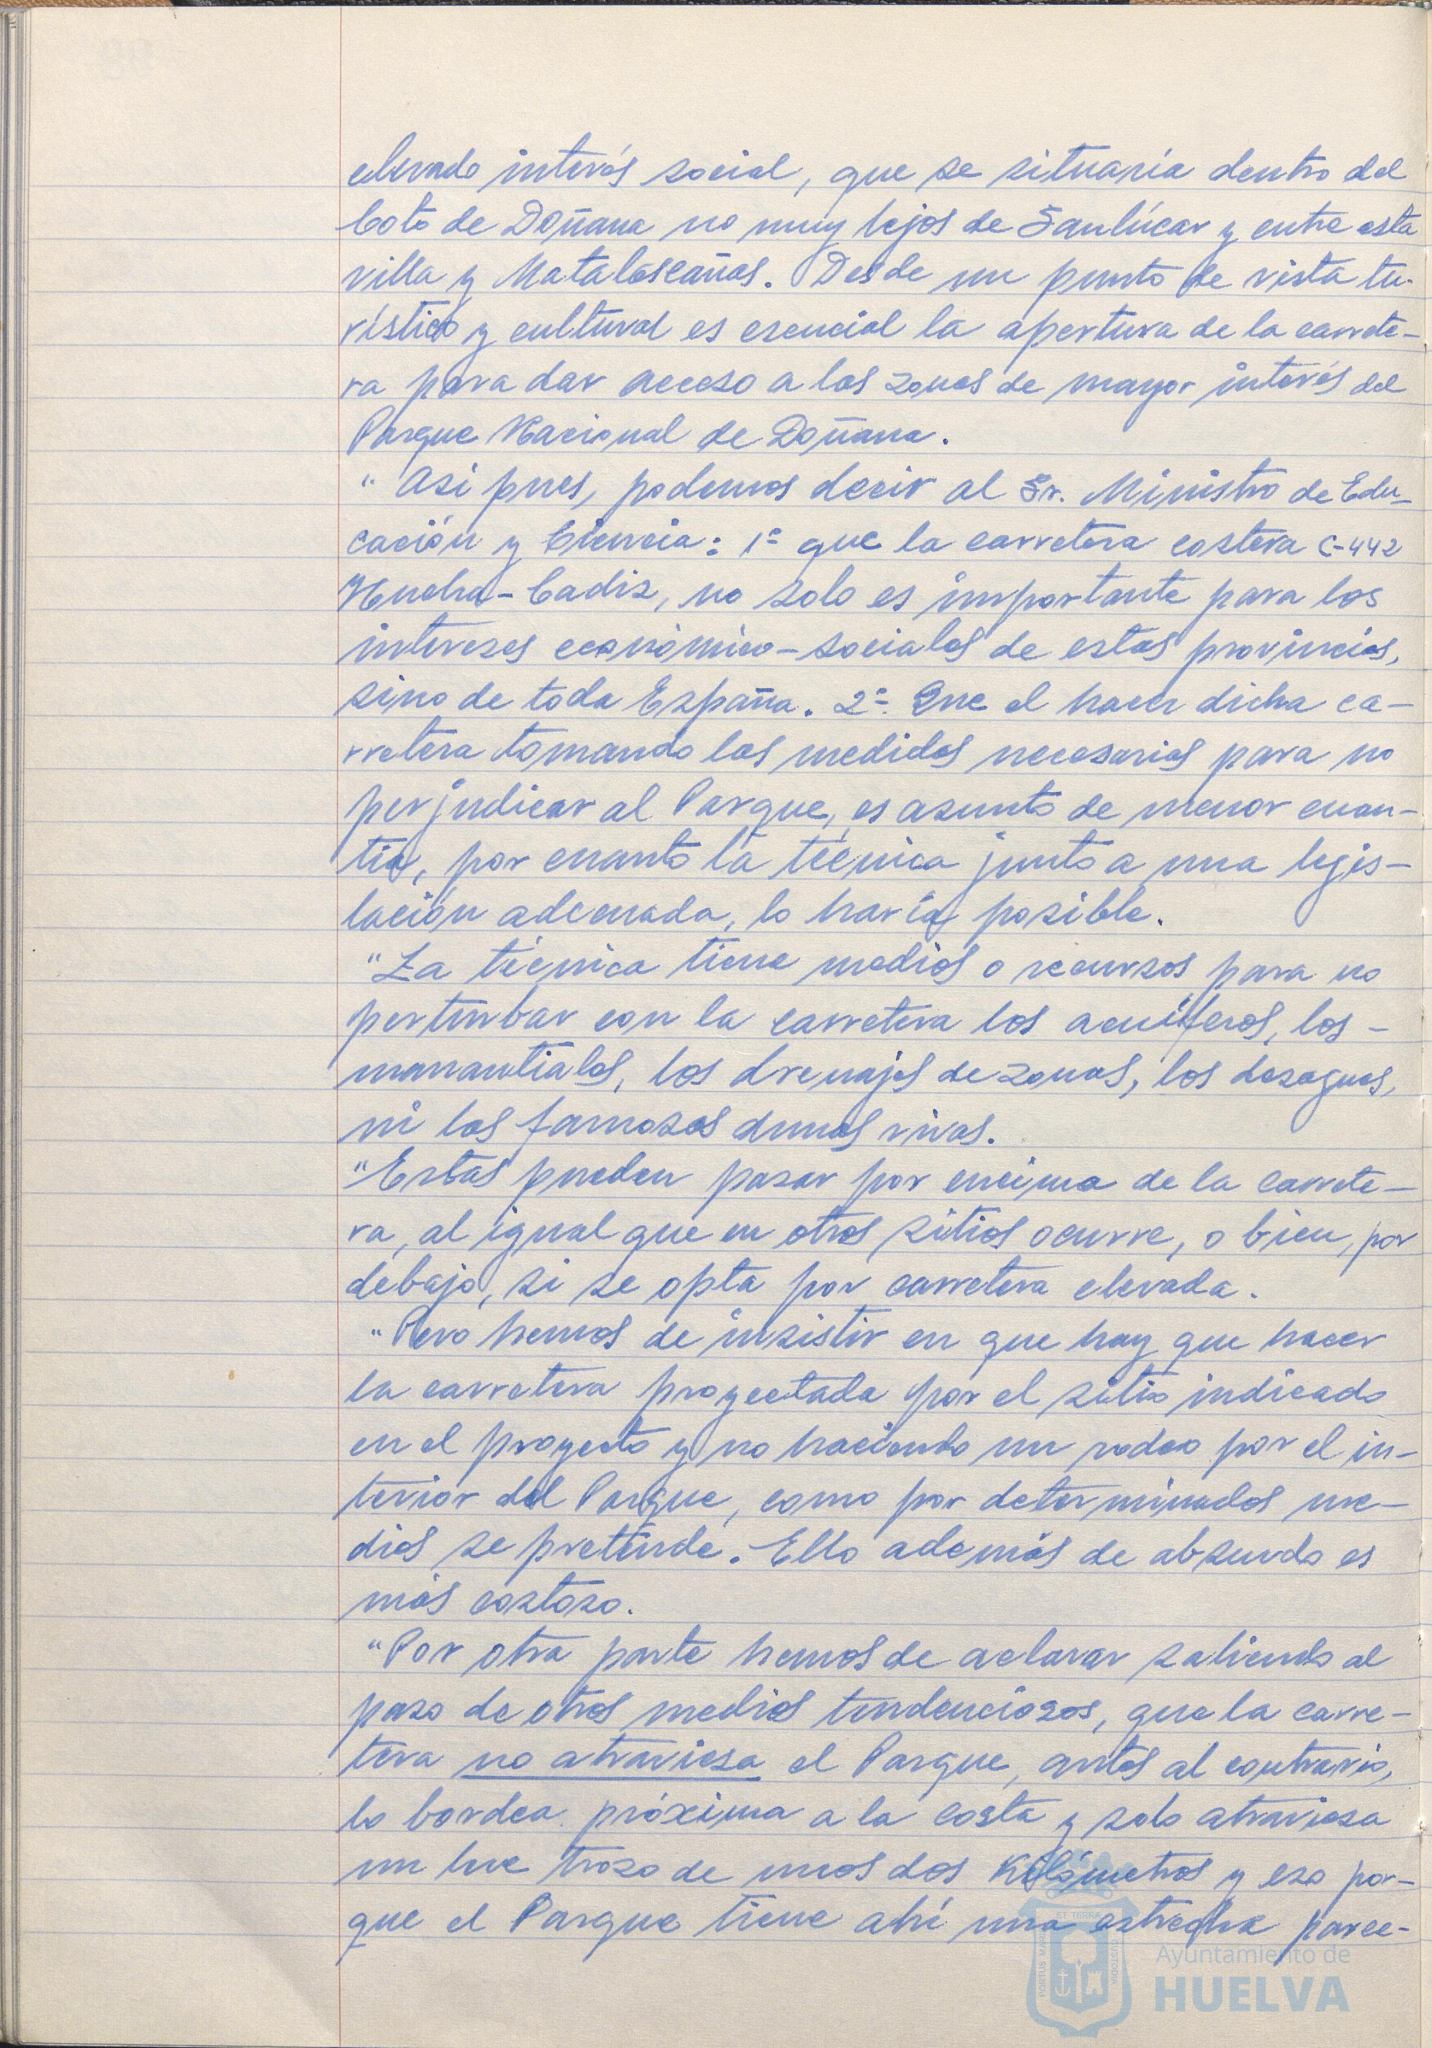 elevado interés social, que se situaría dentro del
Coto de Doñana no muy lejos de Sanlúcar y entre esta
villa y Matalascañas. Desde un punto de vista tu-
rístico y cultural es esencial la apertura de la carrete-
ra para dar acceso a las zonas de mayor interés del
Parque Nacional de Doñana.
" Asi pues, podemos decir al Sr. Ministro de Edu-
cación y Ciencia: 1º que la carretera costera C-442
Huelva-Cadiz, no solo es importante para los
intereses económico-sociales de estas provincias,
sino de toda España. 2º. Que el hacer dicha ca-
rretera tomando las medidas necesarias para no
perjudicar al Parque, es asunto de menor cuan-
tia, por cuanto la técnica junto a una legis-
lación adecuada, lo haría posible.
"La técnica tiene medios o recursos para no
perturbar con la carretera los acuíferos, los-
manantiales, los drenajes de zonas, los desagues,
ni las famosas dunas vivas.
"Estas pueden pasar por encima de la carrete-
ra, al igual que en otros sitios ocurre, o bien, por
debajo, si se opta por carretera elevada.
"Pero hemos de insistir en que hay que hacer
la carretera proyectada por el sitio indicado
en el proyecto y no haciendo un rodeo por el in-
terior del Parque, como por determinados me-
dios se pretende. Ello además de absurdo es
más costoso.
"Por otra parte hemos de aclarar saliendo al
paso de otros medios tendenciosos, que la carre-
tera no atraviesa el Parque, antes al contrario,
lo bordea próxima a la costa y solo atraviesa
un leve trozo de unos dos Kilómetros y eso por-
que el Parque tiene ahí una estrecha parce-
PORTUS MARIS
ET TERRAE
CUSTODIA
Ayuntamiento de
HUELVA